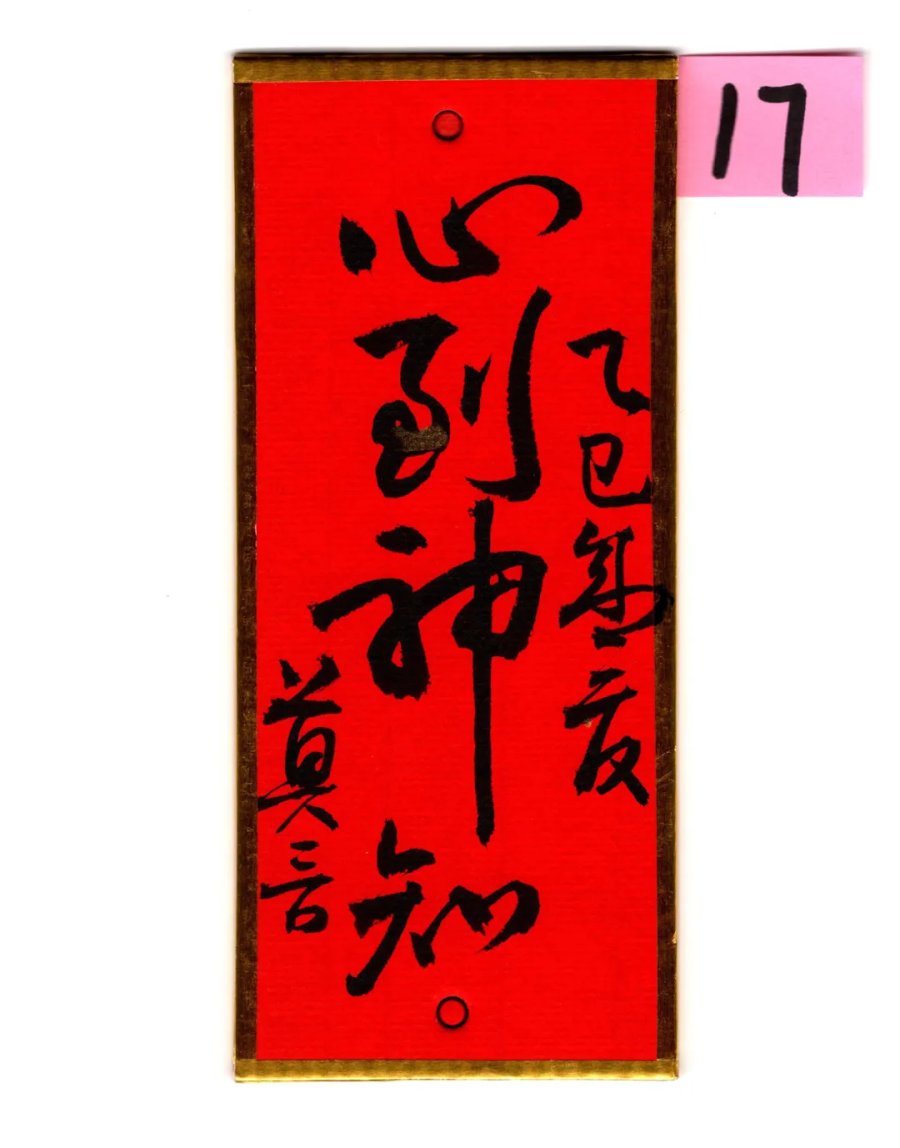 17
乙巳夏
心到神知
莫言